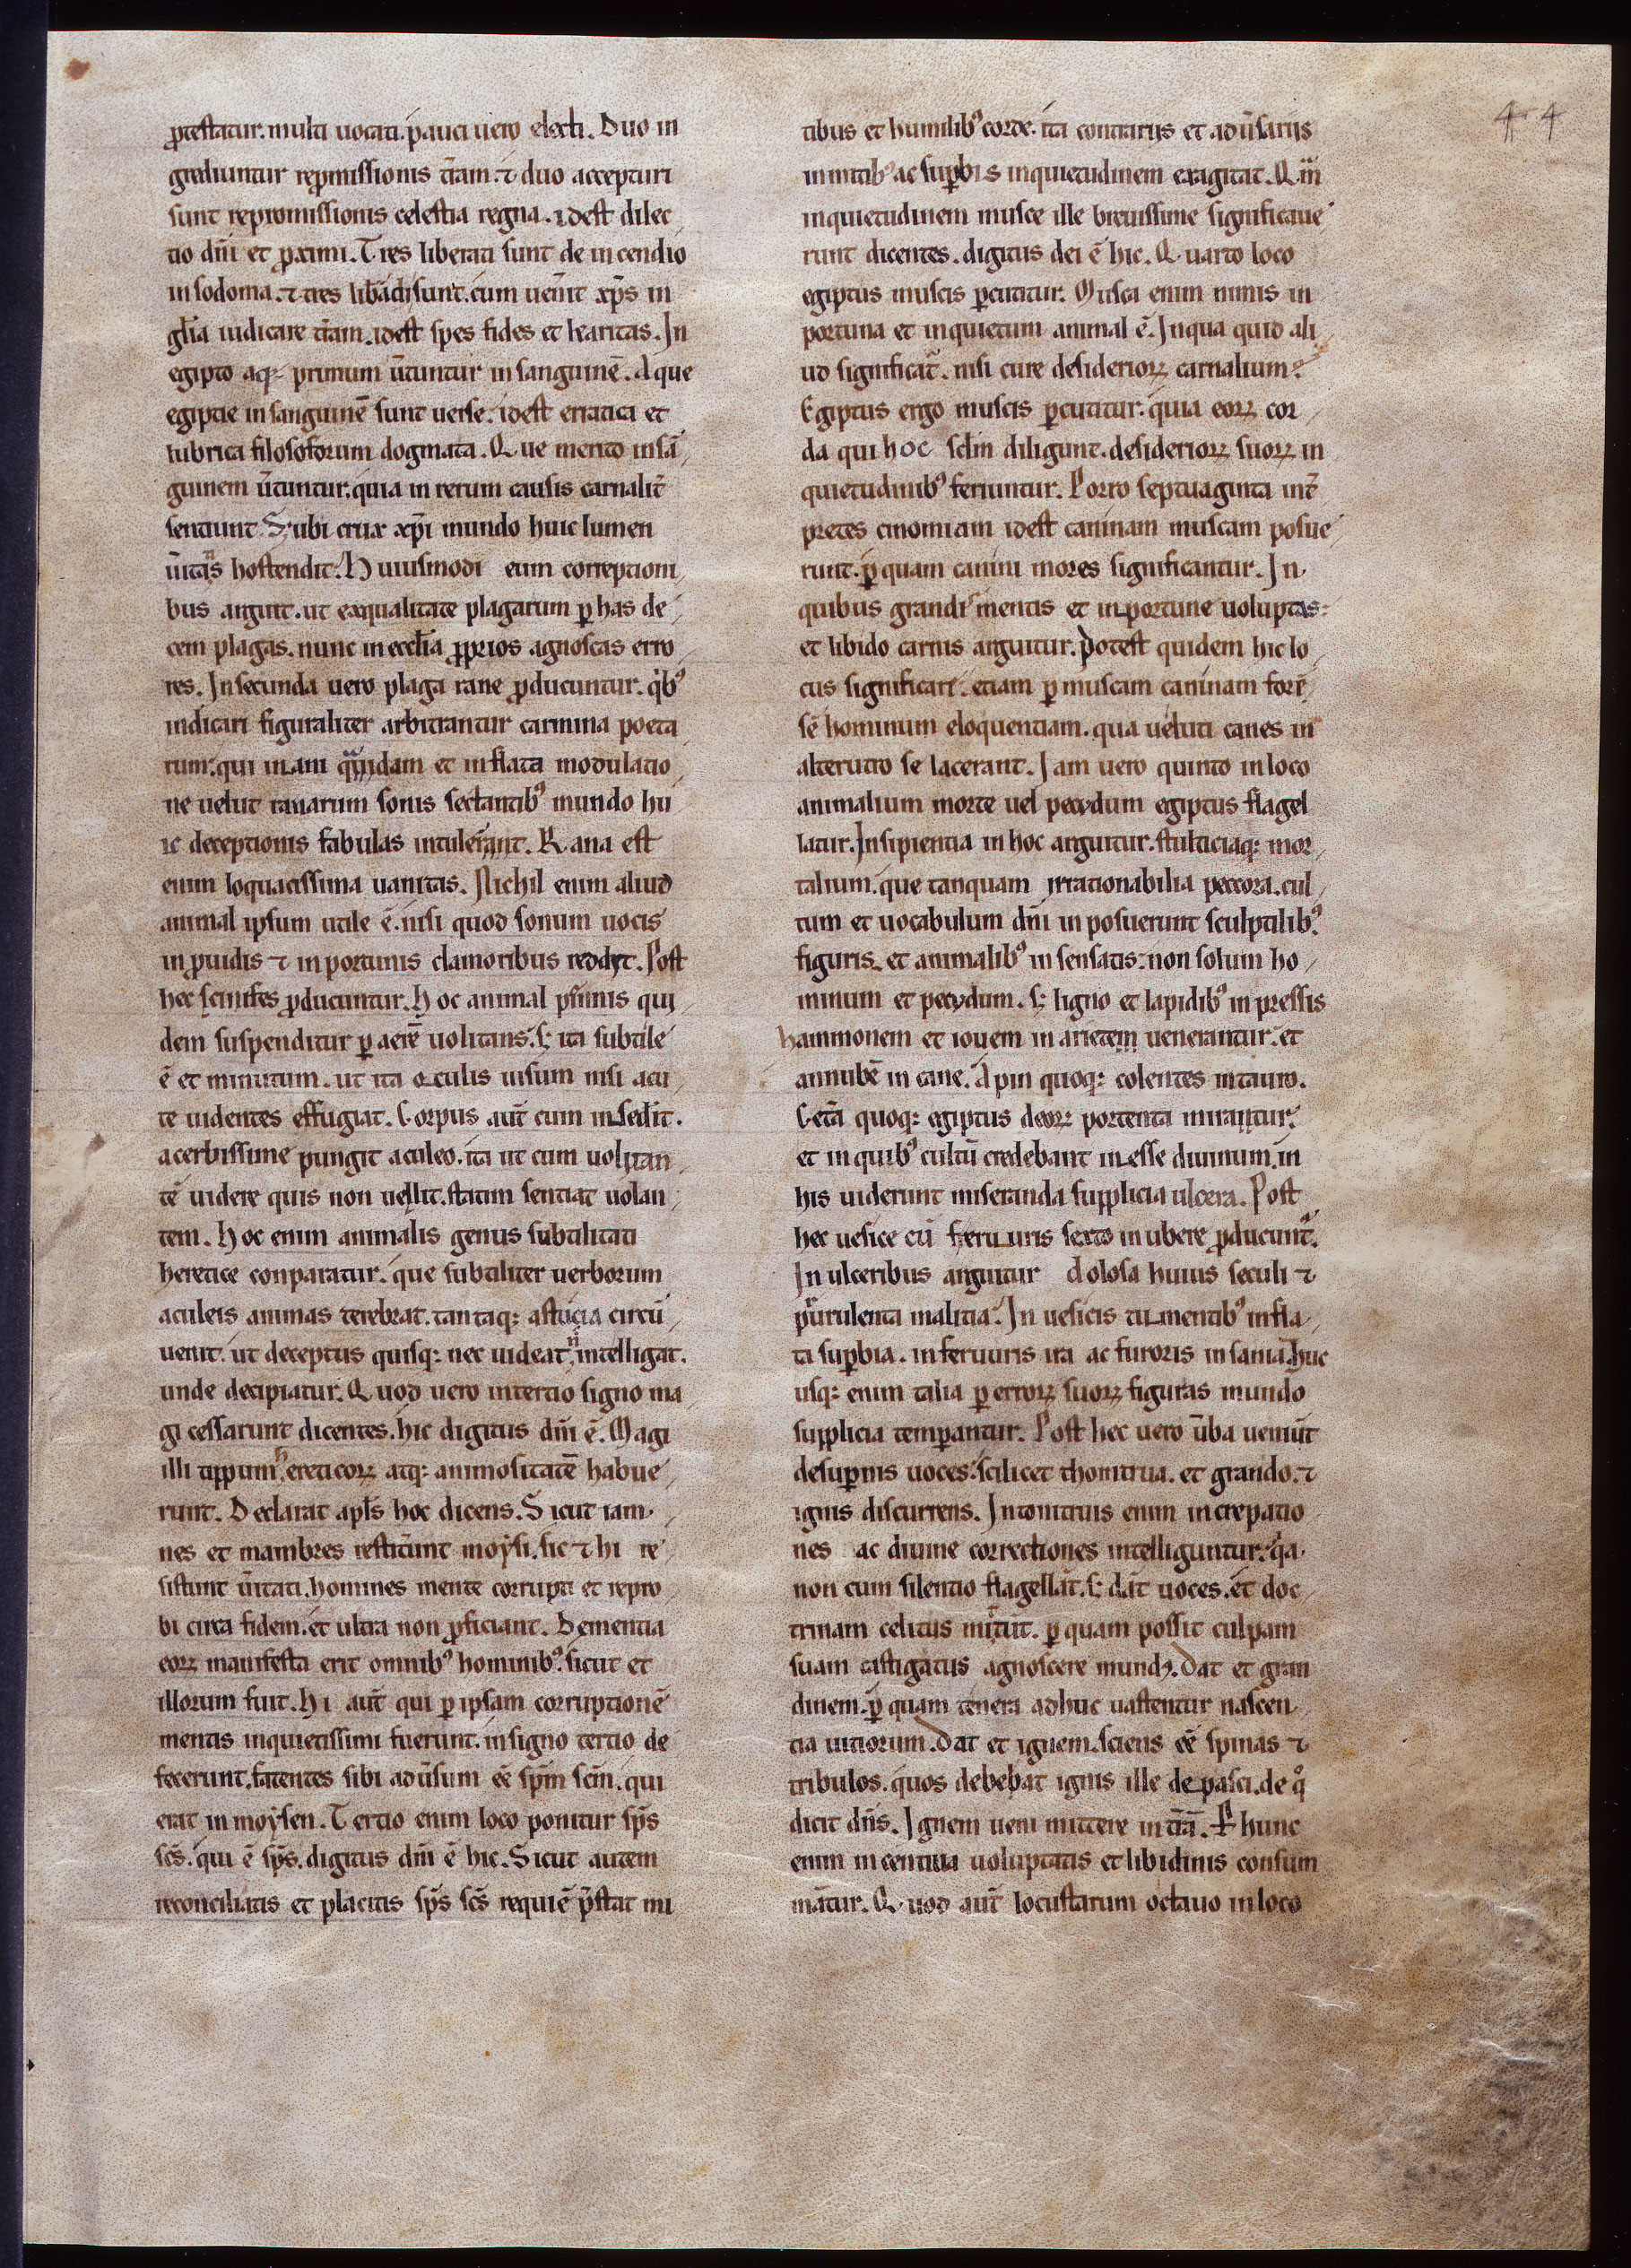 44
ꝓtestatur. multi uocati. pauci uero electi. Duo in
grediuntur repmissionis t̄ram. ⁊ duo accepturi
sunt repromissionis celestia regna. idest dilec
tio dn̄i et ꝓximi. Tres liberati sunt de incendio
in sodoma. ⁊ tres lib̄adi sunt. cum uen̄it xp̄s in
gl̄ia iudicare t̄ram. idest spes fides et karitas. In
egipto aq̨ primum ūtuntur in sanguinē. Aque
egiptie in sanguinē sunt uerse. idest erratica et
lubrica filosoforum dogmata. Que merito in sā
guinem ūtuntur. quia in rerum causis carnalit̄
sentiunt. S; ubi crux xp̄i mundo huic lumen
ūitatis hostendit. Huiusmodi eum correptioni
bus arguit. ut ex qualitate plagarum ꝑ has de
cem plagas. nunc in eccl̄ia ꝓprios agnoscas erro
res. In secunda uero plaga rane ꝓducuntur. qͥbꝰ
indicari figuraliter arbitrantur carmina poeta
rum. qui inani quadam et inflata modulatio
ne uelut ranarum sonis sectantibꝰ mundo hu
ic deceptionis fabulas intulerant. Rana est
enim loquacissima uanitas. Nichil enim aliud
animal ipsum utile ē. nisi quod sonum uocis
inꝓuidis ⁊ inportunis clamoribus reddit. Post
hec scinifes ꝓducuntur. Hoc animal pinnis qui
dem suspenditur ꝑ aerē uolitans. s; ita subtile
ē et minutum. ut ita oculis uisum nisi acu
te uidentes effugiat. Corpus aut̄ cum insedit̄.
acerbissime pungit aculeo. ita ut cum uolitan
tē uidere quis non uellit. statim sentiat uolan
tem. Hoc enim animalis genus subtilitati
heretice conparatur. que subtiliter uerborum
aculeis animas terebrat. tantaq: astucia circū
uenit. ut deceptus quisq: nec uideat n̄ intelligat.
unde decipiatur. Quod uero in tertio signo ma
gi cessarunt dicentes. hic digitus dn̄i ē. Magi
illi tippum hereticoꝝ atq: animositatē habue
runt. Declarat apl̄s hoc dicens. Sicut iam
nes et mambres restiterunt moysi. sic ⁊ hi re
sistunt ūitati. homines mente corrupti et repro
bi circa fidem. et ultra non ꝓficiant. Dementia
eoꝝ manifesta erit omnibꝰ hominibꝰ. sicut et
illorum fuit. Hi aut̄ qui ꝑ ipsam corruptionē
mentis inquietissimi fuerunt. in signo tertio de
fecerunt. fatentes sibi adūsum eē sp̄m sc̄m. qui
erat in moysen. Tertio enim loco ponitur sp̄s
sc̄s. qui ē sp̄s. digitus dn̄i ē hic. Sicut autem
reconciliatis et placitis sp̄s sc̄s requiē p̄stat mi
tibus et humilibꝰ corde. ita contrariis et adūsariis
inmitibꝰ ac suꝑbis inquietudinem exagitat. Qm̄
inquietudinem musce ille breuissime significaue
runt dicentes. digitus dei ē hic. Quarto loco
egiptus muscis ꝑcutitur. Musca enim nimis in
portuna et inquietum animal ē. In qua quid ali
ud significat̄. nisi cure desiderioꝝ carnalium?
Egiptus ergo muscis ꝑcutitur. quia eoꝝ cor
da qui hoc sc̄lm diligunt. desiderioꝝ suoꝝ in
quietudinibꝰ feriuntur. Porro septuaginta int̄
pretes cinomiam idest caninam muscam posue
runt. ꝑ quam canini mores significantur. In
quibus grandis mentis et inportune uoluptas:
et libido carnis arguitur. Potest quidem hic lo
cus significari. etiam ꝑ muscam caninam forē
sē hominum eloquentiam. qua ueluti canes in
alterutro se lacerant. Iam uero quinto in loco
animalium morte uel pecudum egiptus flagel
latur. Insipientia in hoc arguitur. stulticiaq: mor
talium. que tanquam irrationabilia peccora. cul
tum et uocabulum dn̄i inposuerunt sculptilibꝰ.
figuris. et animalibꝰ insensatis. non solum ho
minum et pecudum. s; ligno et lapidibꝰ inpressis
hammonem et iouem in arietem uenerantur. et
annubē in cane. Apin quoq: colentes in tauro.
Cetā quoq: egiptus deoꝝ portenta mirantur.
et in quibꝰ cultū credebant inesse diuinum. in
his uiderunt miseranda supplicia ulcera. Post
hec uesice cū feruuris sexto in ubere ꝓducunt̄.
In ulceribus arguitur dolosa huius seculi ⁊
purulenta malitia. In uesicis tumentibꝰ infla
ti suꝑbia. in feruuris ira ac furoris insania. huc
usq: enim talia ꝑ erroꝝ suoꝝ figuras mundo
supplicia temꝑantur. Post hec uero ūba ueniūt
desuꝑnis uoces. scilicet thonitrua. et grando. ⁊
ignis discurrens. In tonitruis enim increpatio
nes ac diuine correctiones intelliguntur. qͥa
non cum silentio flagellat̄. s; dat̄ uoces. et doc
trinam celitus mittit. ꝑ quam possit culpam
suam castigatus agnoscere mundꝰ. Dat et gran
dinem. ꝑ quam tenera adhuc uastentur nascen
tia uitiorum. Dat et ignem. sciens eē spinas ⁊
tribulos. quos debebat ignis ille depasci. de qͦ
dicit dn̄s. Ignem ueni mittere in t̄rā. P hunc
enim incentiua uoluptatis et libidinis consum
mātur. Quod aut̄ locustarum octauo in loco